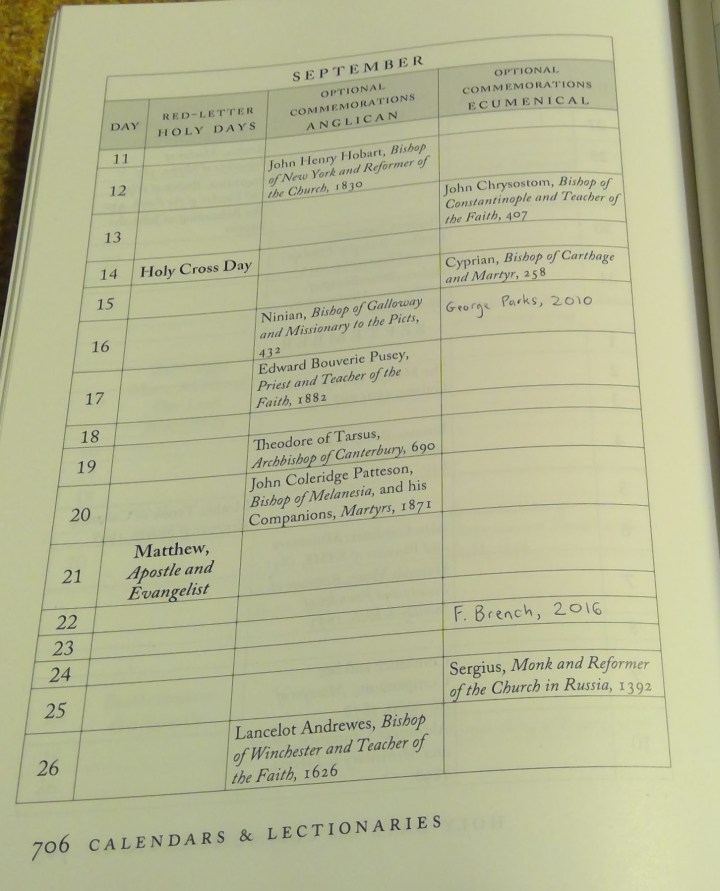 SEPTEMBER
DAY
RED-LETTER
HOLY DAYS
OPTIONAL
COMMEMORATIONS
ANGLICAN
OPTIONAL
COMMEMORATIONS
ECUMENICAL
11
12
John Henry Hobart, Bishop
of New York and Reformer of
the Church, 1830
13
John Chrysostom, Bishop of
Constantinople and Teacher of
the Faith, 407
14
Holy Cross Day
Cyprian, Bishop of Carthage
and Martyr, 258
15
George Parks, 2010
16
Ninian, Bishop of Galloway
and Missionary to the Picts,
432
17
Edward Bouverie Pusey,
Priest and Teacher of the
Faith, 1882
18
19
Theodore of Tarsus,
Archbishop of Canterbury, 690
20
John Coleridge Patteson,
Bishop of Melanesia, and his
Companions, Martyrs, 1871
21
Matthew,
Apostle and
Evangelist
22
F. Brench, 2016
23
24
25
Sergius, Monk and Reformer
of the Church in Russia, 1392
26
Lancelot Andrewes, Bishop
of Winchester and Teacher of
the Faith, 1626
706 CALENDARS & LECTIONARIES